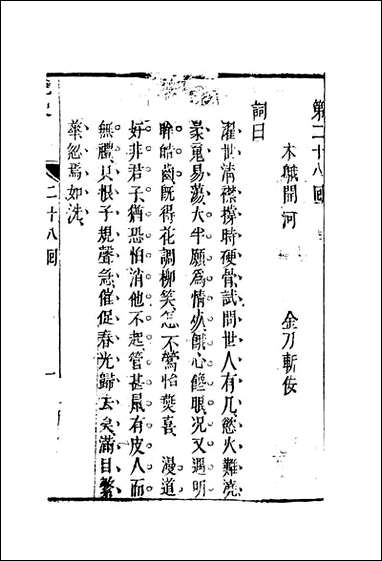 第二十八回
木鵝開河 金刀斬佞
詞曰
濯世清襟撐時硬骨試問世人有几慾火難澆
易蕩大半願爲情死餓心饞眼况又遇明
眸皓齒既得花調柳笑怎不驚怡喜 漫道
好非君子猶恐怕消他不起管甚鼠有皮人而
無禮只恨子規聲急催促春光歸去矣滿目繁
華忽焉如洗
史 二十八回 一